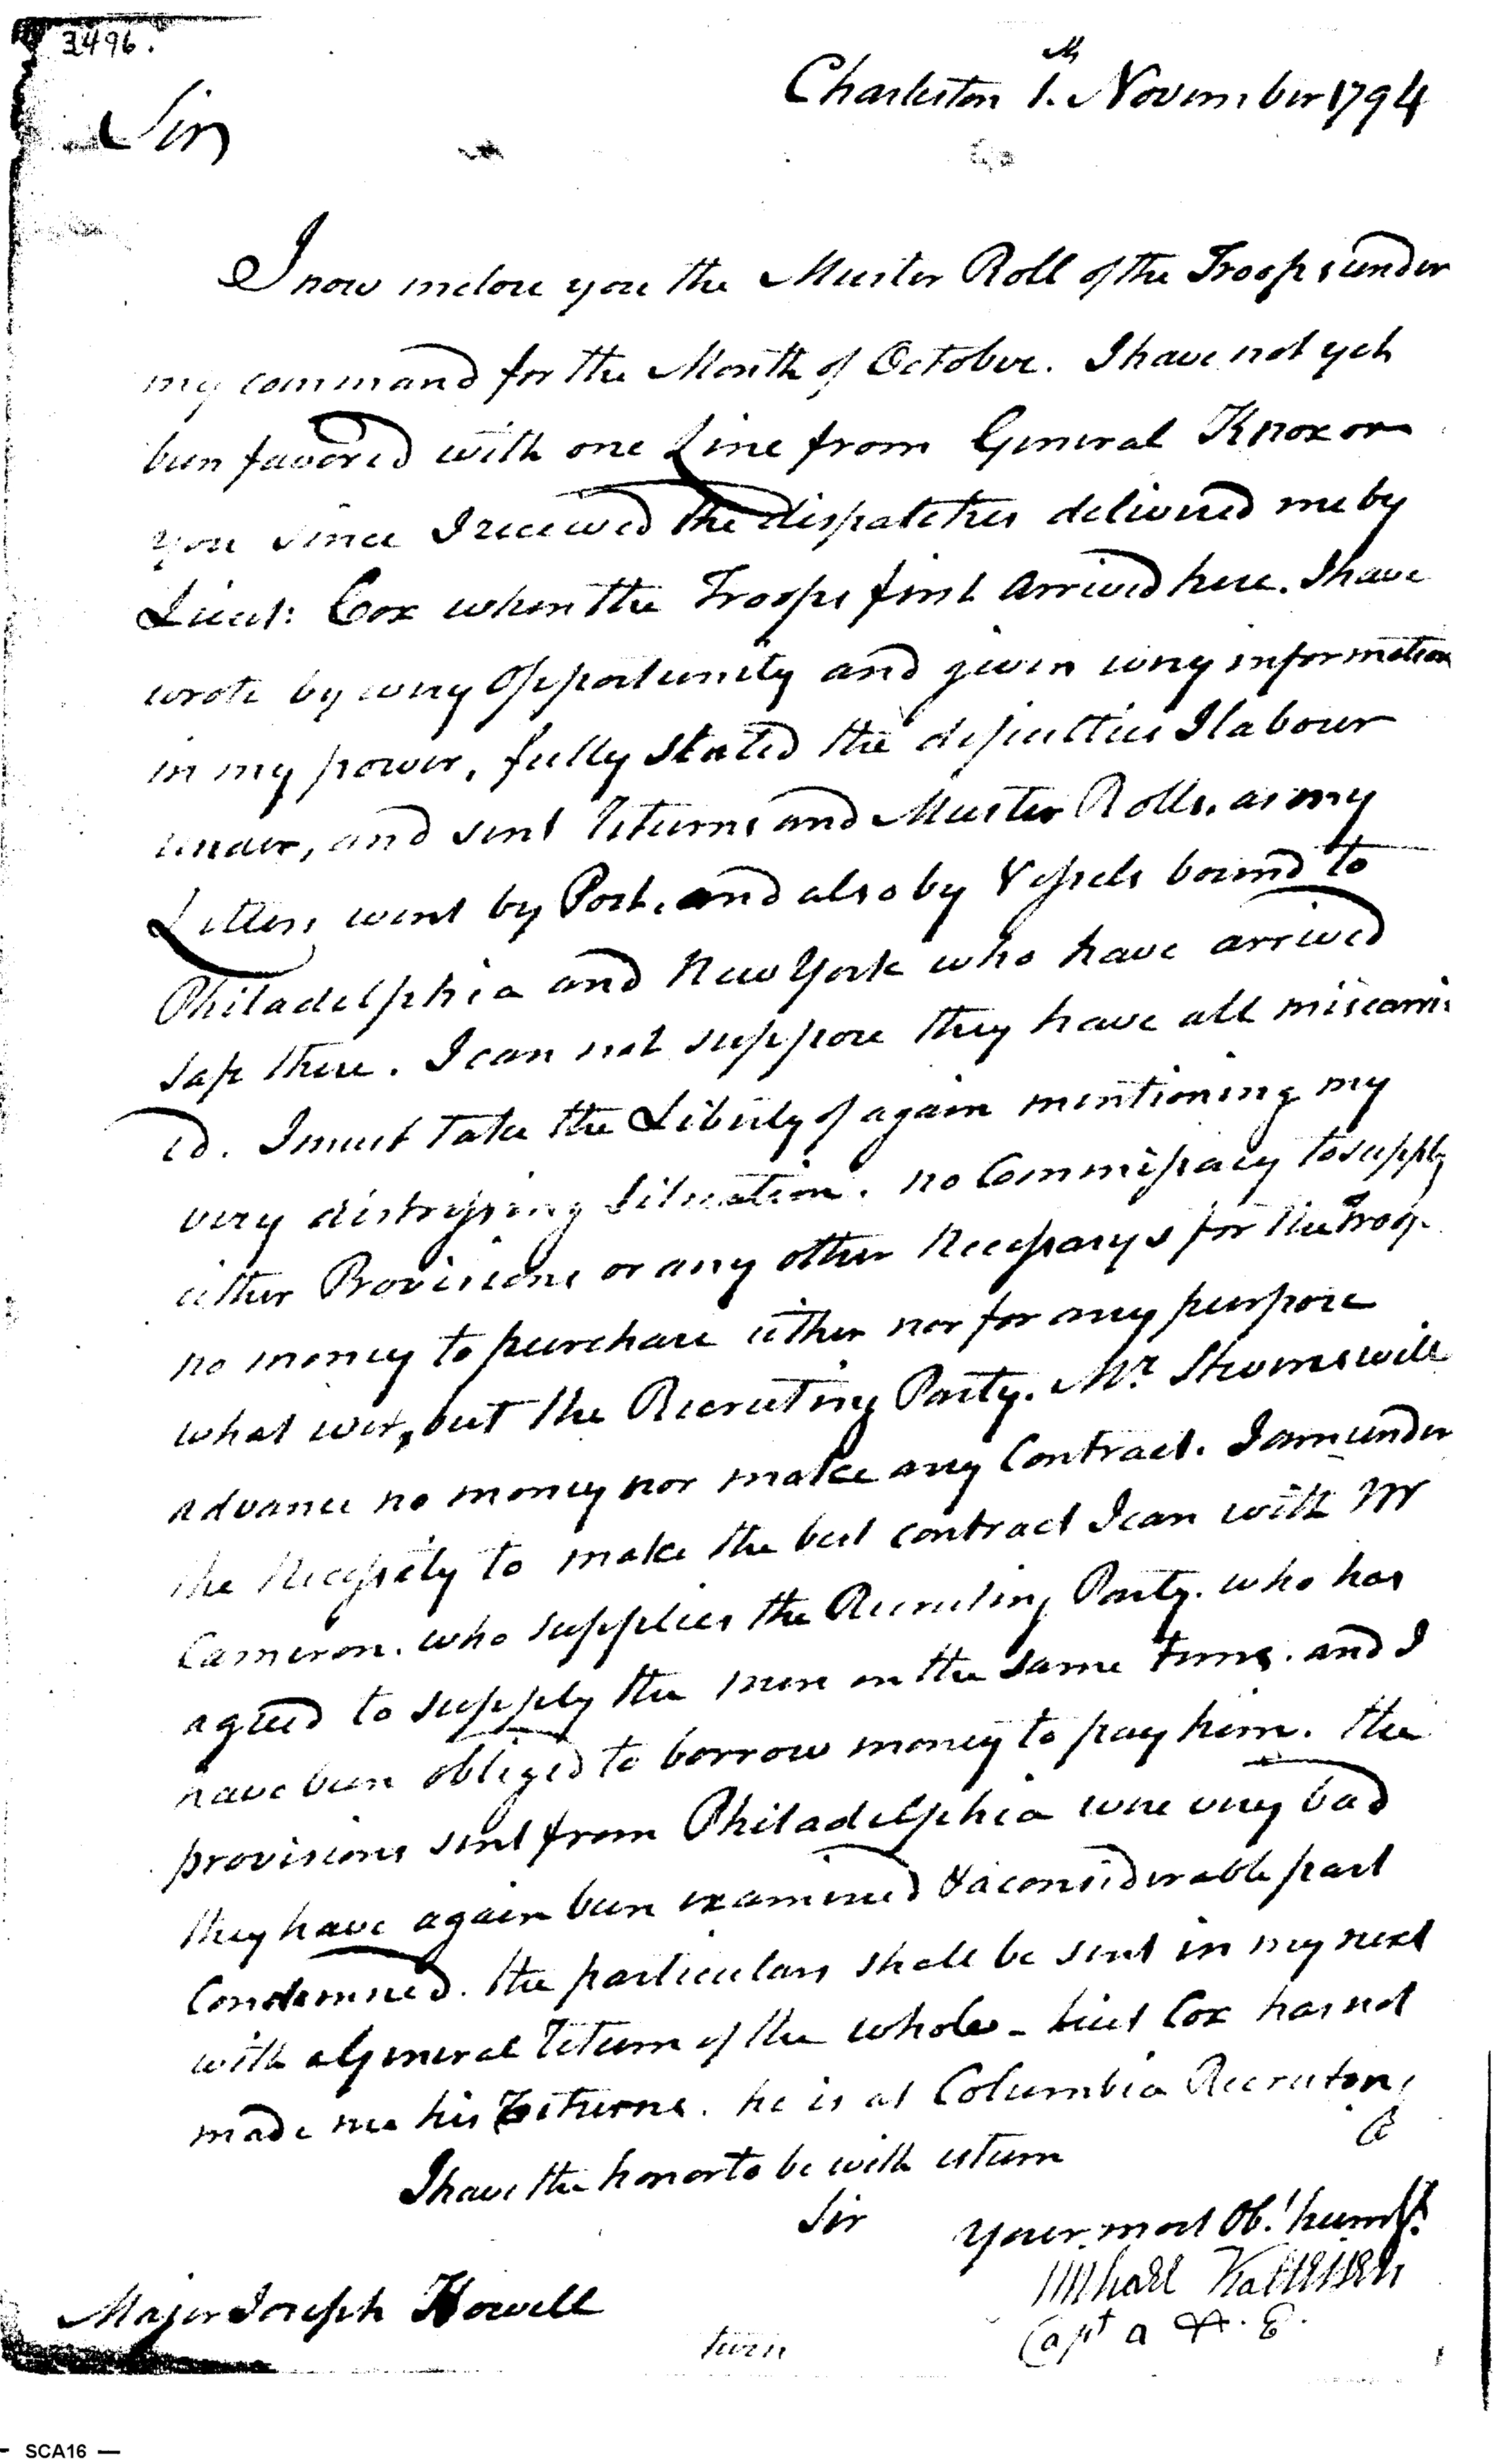 3496.
Charleston 1.th November 1794
Sir
I now inclose you the Muster Roll of the Troops under
my command for the Month of October. I have not yet
been favored with one Line from General Knox or
you since I received the dispatches delivered me by
Lieut: Cox when the Troops first arrived here. I have
wrote by every Opportunity and given every information
in my power, fully stated the dificulties I labour
under, and sent Returns and Muster Rolls. as my
Letters went by Post. and also by Vessels bound to
Philadelphia and New York who have arrived
safe there. I can not suppose they have all miscarri
ed. I must take the Liberty of again mentioning my
very distressing Situation. no Commissary to supply
either Provisions or any other Necessarys for the Troop
no money to purchase either nor for any purpose
what ever, but the Recruiting Party. Mr. Stevens will
advance no money nor make any Contract. I am under
the Necessity to make the best contract I can with Mr
Cameron. who supplies the Recruiting Party. who has
agreed to supply the men on the same terms. and I
have been obliged to borrow money to pay him. the
provisions sent from Philadelphia were very bad
they have again been examined & a considerable part
Condemned. the particulars shall be sent in my next
with a General Return of the whole - Lieut Cox has not
made me his Returns. he is at Columbia Recruiting
I have the honor to be with esteem
Sir your most Ob.t hum.
Michael Kalteisen
Capt a & E.
Major Joseph Howell
turn
- SCA16 —